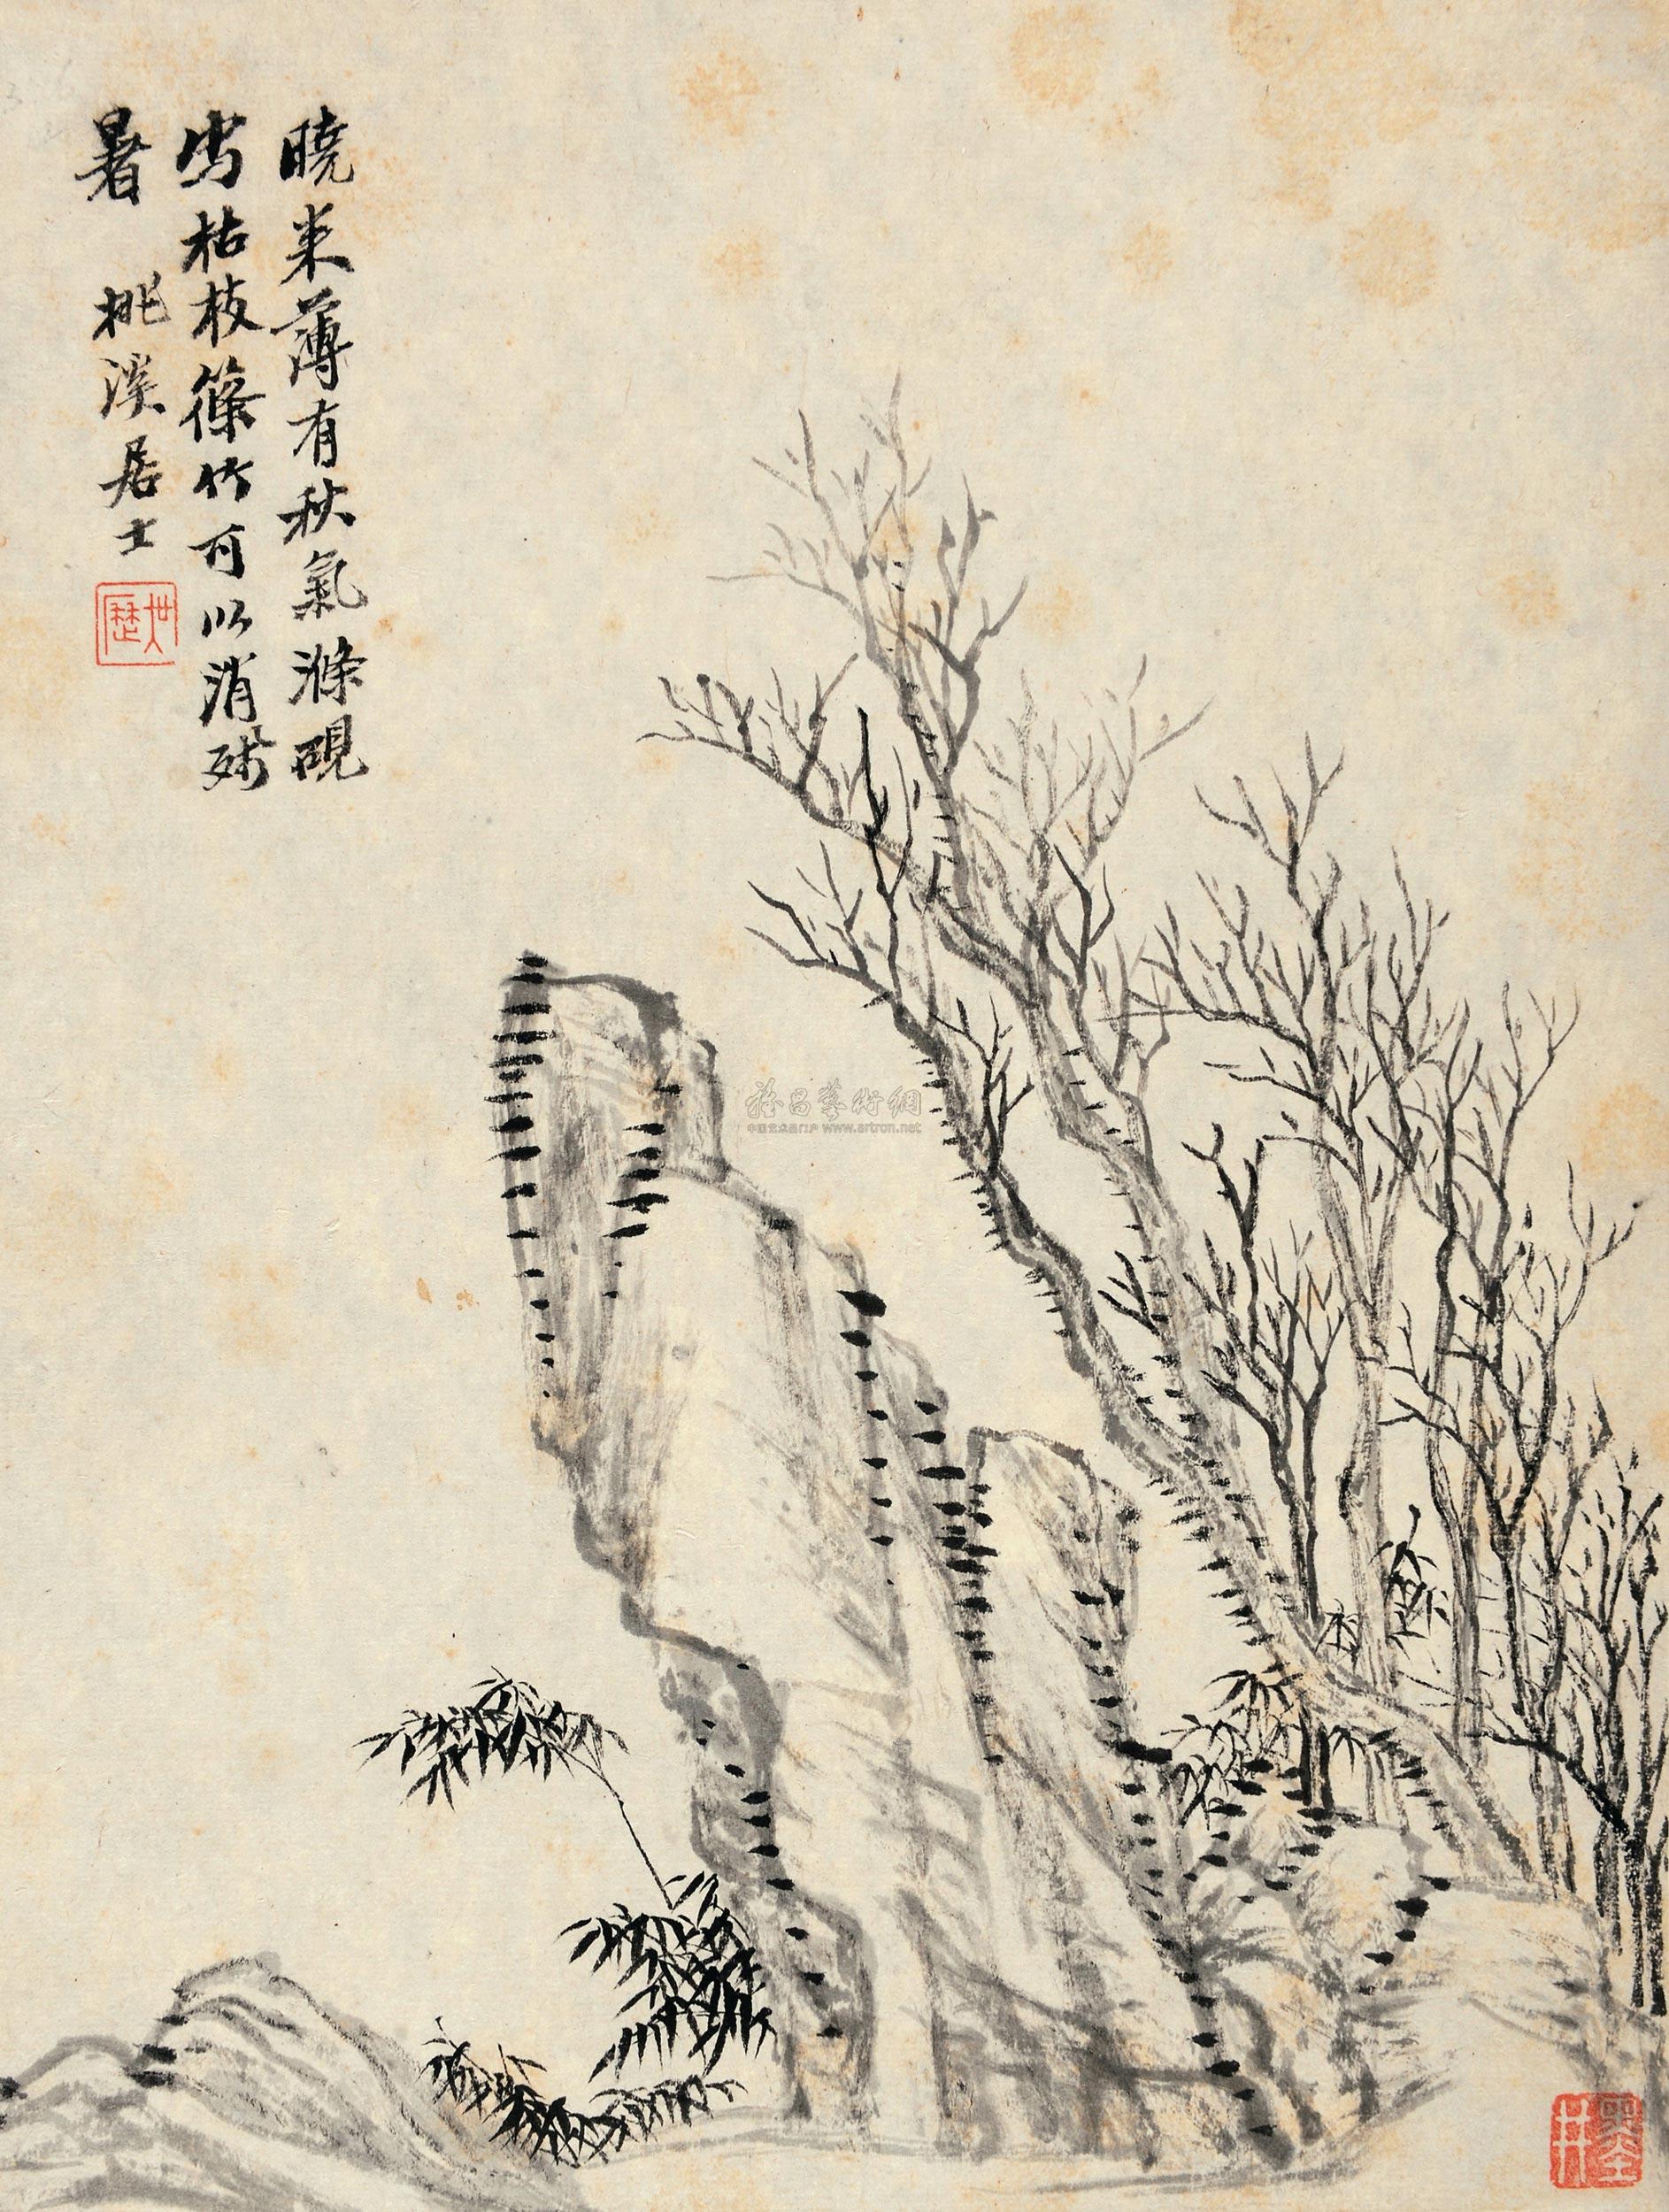 曉来薄有秋氣滌硯
寫枯枝篠竹可以消殘
暑
桃溪居士
世歷
雅昌藝術網
中国艺术品门户 www.artron.net